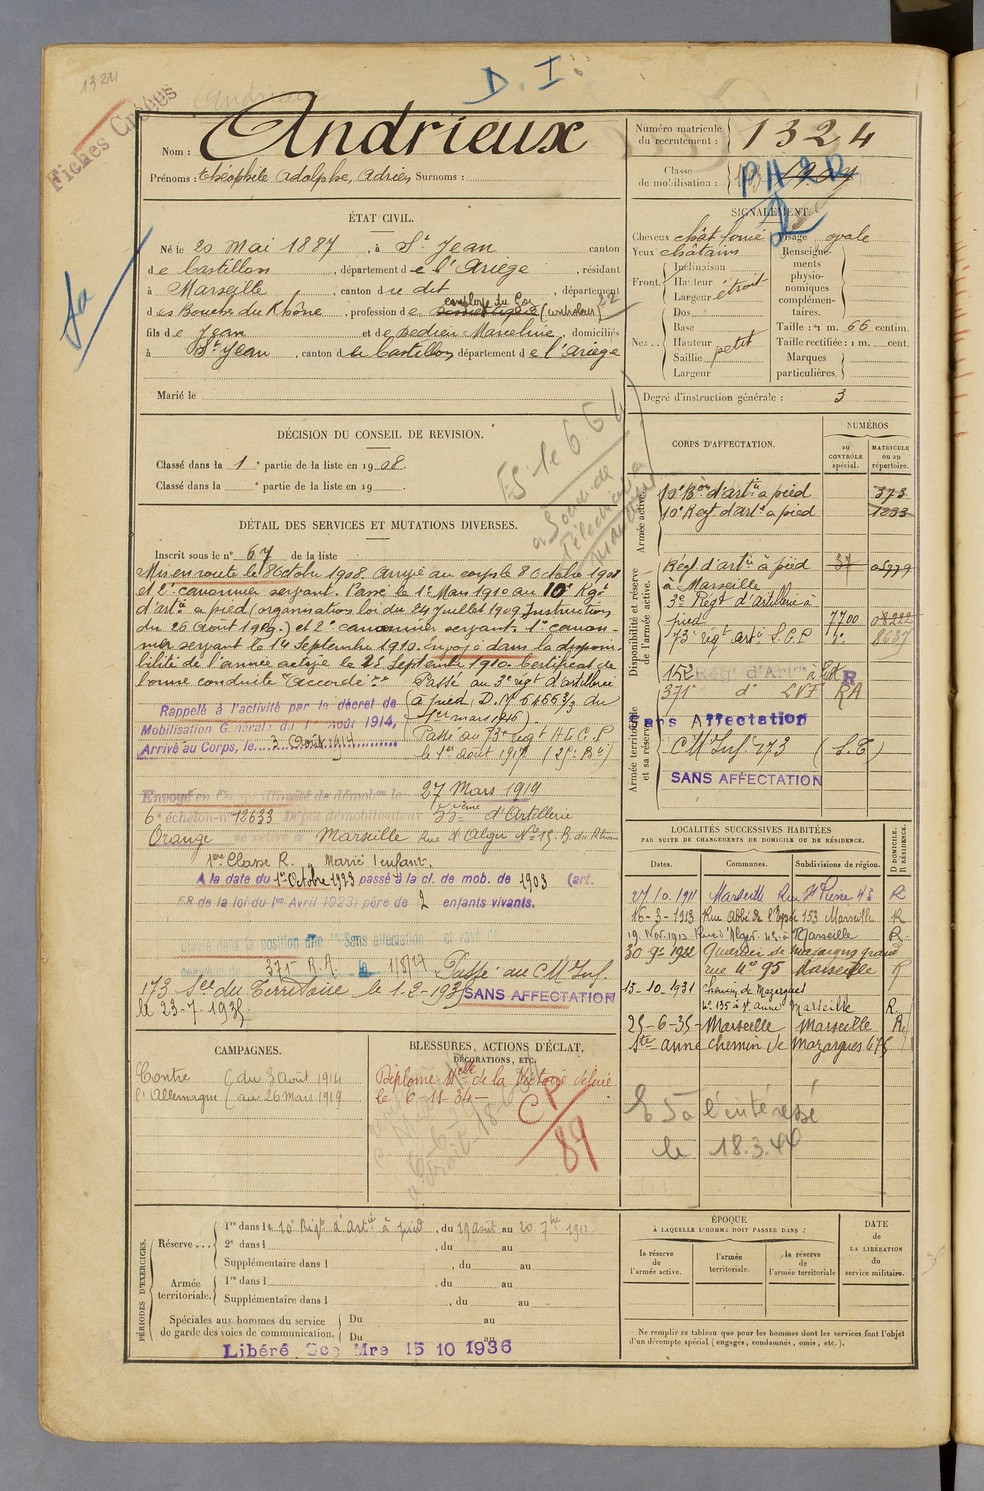 1324
D. I.
Fiches Créées
Andrieux
Nom : Andrieux
Prénoms : Théophile Adolphe, Adrien Surnoms :
Numéro matricule du recrutement : 1324
Classe de mobilisation :
ÉTAT CIVIL.
Né le 20 Mai 1887, à St Jean canton
de Castillon, département de l'Ariège, résidant
à Marseille, canton du dit, département
des Bouches du Rhône, profession de employé du Gaz (controleur) 22
fils de Jean et de Dedieu Marceline, domiciliés
à St Jean, canton de Castillon département de l'Ariège
Marié le
SIGNALEMENT.
Cheveux chât foncé Visage ovale
Yeux châtains
Front Inclinaison
Hauteur
Largeur étroit
Nez Dos
Base
Hauteur
Saillie petit
Largeur
Renseignements physionomiques complémentaires.
Taille : 1 m. 66 centim.
Taille rectifiée : 1 m. cent.
Marques particulières.
Degré d'instruction générale : 3
DÉCISION DU CONSEIL DE REVISION.
Classé dans la 1e partie de la liste en 1908.
Classé dans la e partie de la liste en 19
DÉTAIL DES SERVICES ET MUTATIONS DIVERSES.
Inscrit sous le n° 67 de la liste
Mis en route le 8 Octobre 1908. Arrivé au corps le 8 Octobre 1908
et 2e canonnier servant. Passé le 1er Mars 1910 au 10e Régt
d'artie à pied (organisation loi du 24 juillet 1909 Instruction
du 26 Août 1909.) et 2e canonnier servant. 1er canon-
nier servant le 14 Septembre 1910. Envoyé dans la disponi-
bilité de l'armée active le 25 Septembre 1910. Certificat de
bonne conduite "Accordé"
Passé au 3e régt d'artillerie
à pied, D. M. 6466 3/3 du
1er mars 1916).
Passé au 73e régt A L G P
le 1er août 1917 (25e Bie)
Rappelé à l'activité par le décret de
Mobilisation Générale du 1er août 1914,
Arrivé au Corps, le 3 Août 1914
Envoyé en démobon le 27 Mars 1919
6e échelon n° 12633 Dépôt démobilisateur 55ème d'Artillerie
Orange se retire à Marseille Rue d'Alger No 15. B. du Rhône
1ère Classe R. Marié 1 enfant.
A la date du 1er Octobre 1923 passé à la cl. de mob. de 1903 (art.
58 de la loi du 1er Avril 1923) père de 2 enfants vivants.
Classé dans la position dite "Sans affectation" et rayé de
371e R.A. le 1/5/29 Passé au CM Inf.
173 Son du Territoire le 1-2-1935 SANS AFFECTATION
le 23-7-1935
CORPS D'AFFECTATION.
NUMÉROS
au CONTRÔLE spécial.
MATRICULE ou au répertoire.
Armée active.
10e Bon d'artie à pied 373
10e Régt d'artie à pied 1233
Disponibilité et réserve de l'armée active.
Régt d'artie à pied 37
à Marseille
3e Régt d'Artillerie à
pied 7700
73e régt artie L.G.P. 8637
152 Régt d'Artie à Pied R
371e do LVF RA
Armée territoriale et sa réserve.
Sans Affectation
CM Inf. 173 (S.T)
SANS AFFECTATION
LOCALITÉS SUCCESSIVES HABITÉES
PAR SUITE DE CHANGEMENTS DE DOMICILE OU DE RÉSIDENCE.
Dates. Communes. Subdivisions de région. D DOMICILE. R RÉSIDENCE.
27/10.1911 Marseille Rue St Pierre 43 R
16-3-1913 Rue Abbé de l'Epée 153 Marseille R
19 Nov. 1913 Rue d'Alger 15 à Marseille R
30 9e 1922 Quartier de mazargues grand
rue no 95 Marseille R
13-10-1931 Chemin de Mazargues
No 135 à St anne Marseille R
25-6-35 Marseille Marseille R
Ste anne chemin de Mazargues 675
E S à l'intéressé
le 18.3.40
CAMPAGNES.
Contre (du 3 août 1914
l'Allemagne (au 26 mars 1919
BLESSURES, ACTIONS D'ÉCLAT,
DÉCORATIONS, ETC.
Diplome Melle de la Victoire délivré
le 6-11-34
CP
89
PÉRIODES D'EXERCICES.
Réserve
1re dans le 10e Régt d'Artie à pied, du 19 août au 20 7bre 1912
2e dans l , du au
Supplémentaire dans l , du au
Armée territoriale.
1re dans l , du au
Supplémentaire dans l , du au
Spéciales aux hommes du service
de garde des voies de communication. Du au
Du au
Libéré Ser Mre 15 10 1936
ÉPOQUE
À LAQUELLE L'HOMME DOIT PASSER DANS :
la réserve de l'armée active.
l'armée territoriale.
la réserve de l'armée territoriale
DATE de LA LIBÉRATION du service militaire.
Ne remplir ce tableau que pour les hommes dont les services font l'objet
d'un décompte spécial (engagés, condamnés, omis, etc.).